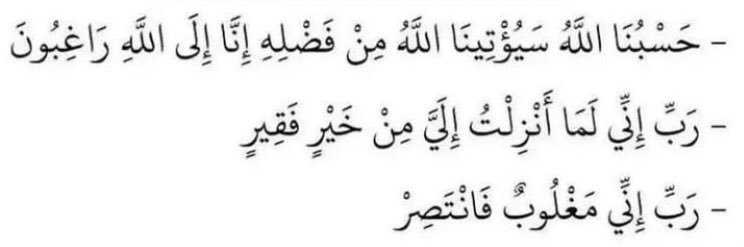 - حَسْبُنَا اللَّهُ سَيُؤْتِينَا اللَّهُ مِنْ فَضْلِهِ إِنَّا إِلَى اللَّهِ رَاغِبُونَ
- رَبِّ إِنِّي لَمَا أَنْزِلْتُ إِلَيَّ مِنْ خَيْرٍ فَقِيرٍ
- رَبِّ إِنِّي مَغْلُوبٌ فَانْتَصِرْ